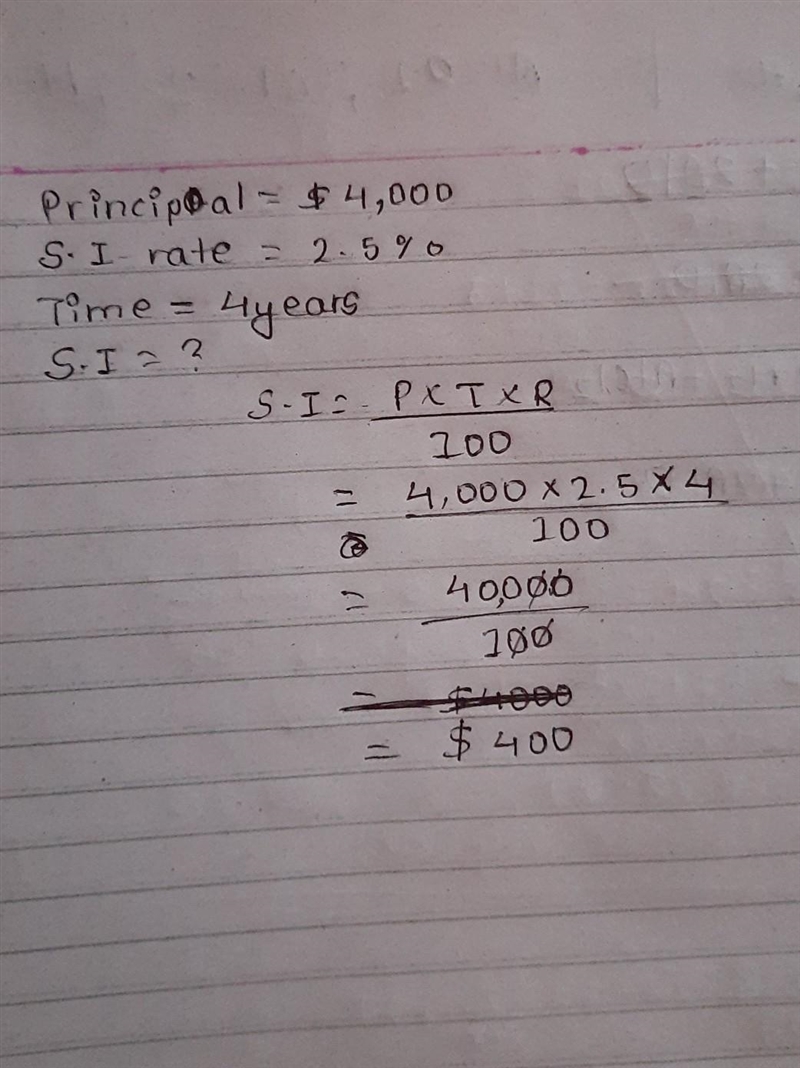 Principal = $ 4,000
S.I rate = 2.5%
Time = 4years
S.I = ?
S.I = P X T X R
100
= 4,000 × 2.5 × 4
100
= 40,000
100
= $4000
= $ 400